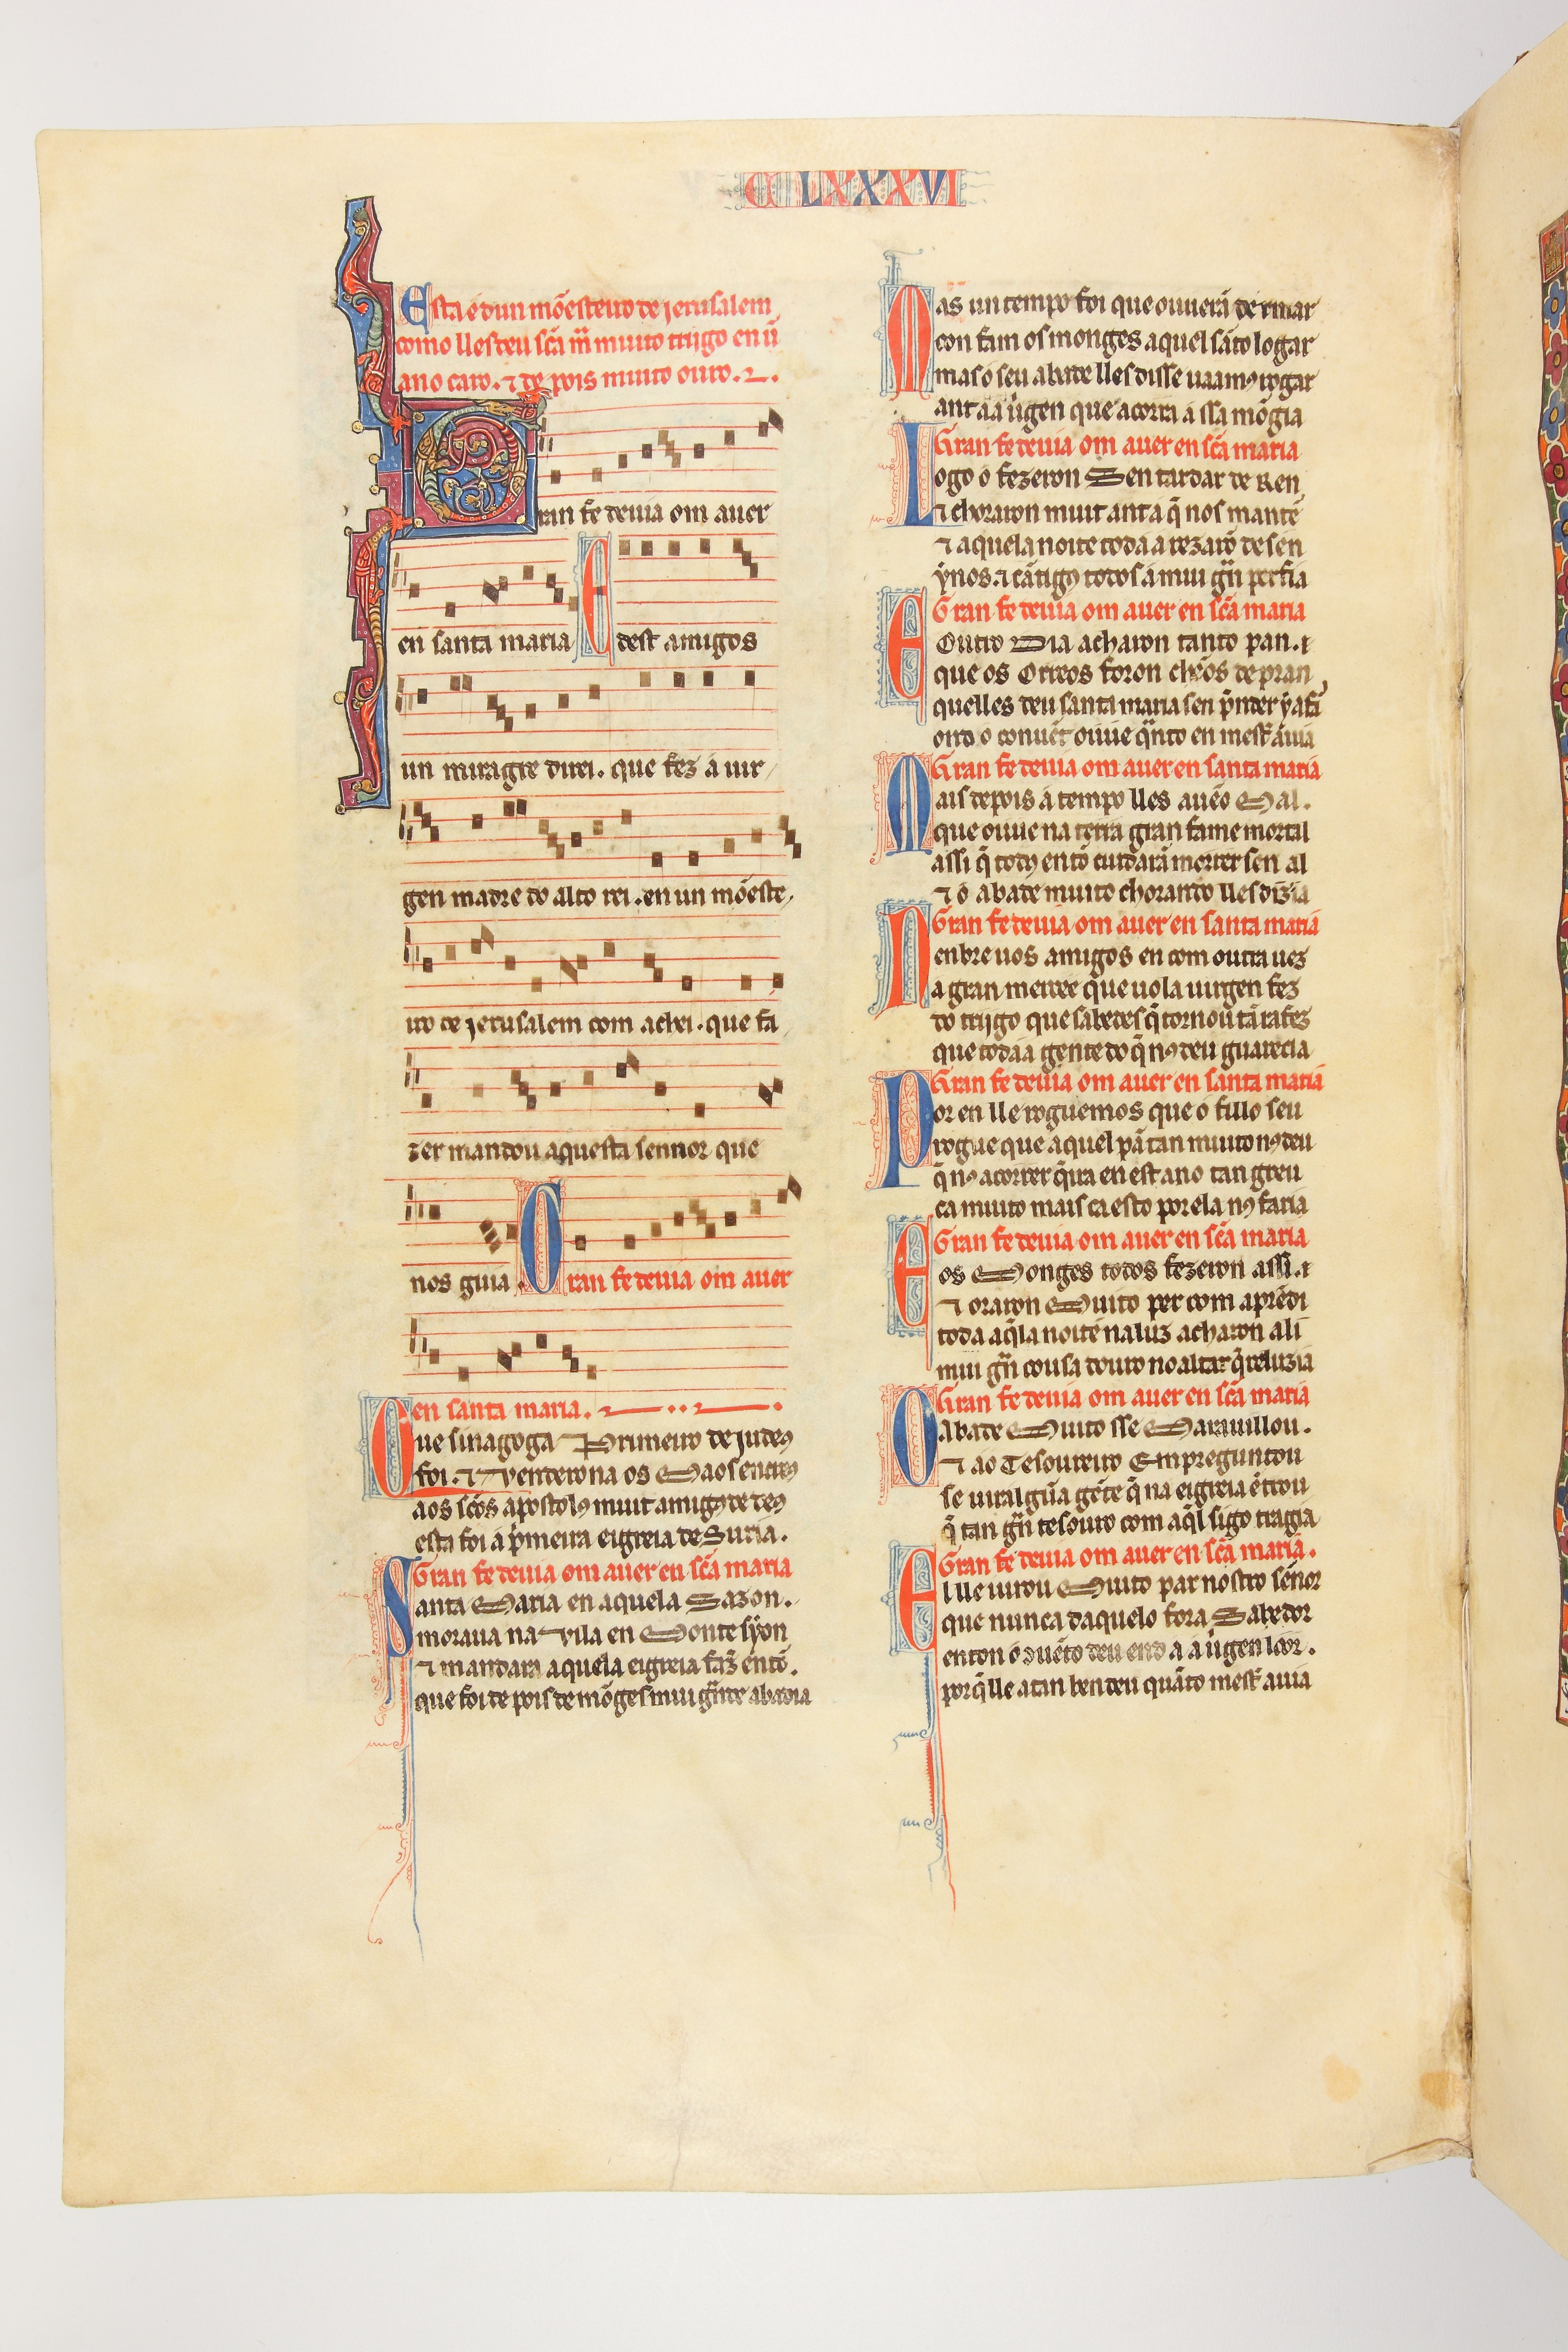 CLXXXVI
Esta é dun mõesteiro de jerusalem
como lles deu sc̃a m̃ muito trijgo en ũ
ano caro. ⁊ depois muito ouro.
Gran fe deuia om auer
en santa maria E dest amigos
un miragre direi. que fez a uir
gen madre do alto rei. en un mõeste
iro de jerusalem com achei. que fa
zer mandou aquesta sennor que
nos guia. Gran fe deuia om auer
en santa maria.
Que sinagoga primeiro de judeus
foi. ⁊ uenderona os Maos encreus
aos sc̃os apostolos muit amigos de deus
esta foi a p̃meira eigreia de Suria.
Gran fe deuia om auer en sc̃a maria
Santa Maria en aquela Sazon.
moraua na vila en Monte syon
⁊ mandara aquela eigreia faz̃ entõ.
que foi depois de mõges mui gr̃nde abadia
Mas un tempo foi que ouuerã de rmar
con fam os monges aquel sãto logar
mas o seu abade lles disse uaamos rogar
ant a a uirgen que acorra a ssa mõgia
Gran fe deuia om auer en sc̃a maria
Logo o fezeron Sen tardar de Ren
⁊ choraron muit ant a q̃ nos manten
⁊ aquela noite toda a rezarõ de sen
ynos. ⁊ cãtigos todos a mui gr̃n perfia
Gran fe deuia om auer en sc̃a maria
E Outro Dia acharon tanto pan. ⁊
que os Orreos foron chẽos de pran
quelles deu santa maria sen p̃nder y afã
ond o conuẽt ouue q̃nto en mest̃ auia
Gran fe deuia om auer en santa maria
Mais depois a tempo lles auẽo Mal.
que ouue na terra gran fame mortal
assi q̃ todos entõ cuidarã morrer sen al
⁊ o abade muito chorando lles dizia
Gran fe deuia om auer en santa maria
Nenbre uos amigos en com outra uez
a gran mercee que uola uirgen fez
do trijgo que sabedes q̃ tornou tã rafez
que toda a gente do q̃ nos deu guarecia
Gran fe deuia om auer en santa maria
Por en lle roguemos que o fillo seu
rogue que aquel pã tan muito nos deu
q̃ nos acorrer q̃ira en est ano tan greu
ca muito mais ca esto por ela nos faria
Gran fe deuia om auer en sc̃a maria
E os Monges todos fezeron assi. ⁊
⁊ oraron Muito per com aprendi
toda aq̃la noite na luz acharon ali
mui gr̃n cousa douro no altar q̃ reluzia
Gran fe deuia om auer en sc̃a maria
O abade Muito sse Marauillou.
⁊ ao Tesoureiro Empreguntou
se uira algũa gẽte q̃ na eigreia ẽtrou
q̃ tan gr̃n tesouro com aq̃l sigo tragia
Gran fe deuia om auer en sc̃a maria.
Elle iurou Muito par nostro sẽnor
que nunca daquelo fora Sabedor
enton o conuẽto deu end a a uirgen loor.
porq̃ lle atan ben deu quãto mest̃ auia